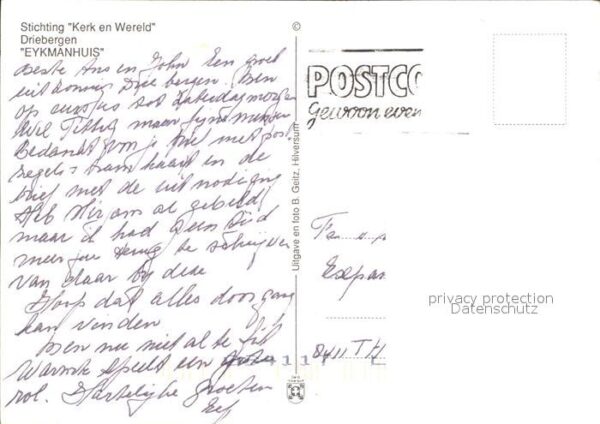 Stichting "Kerk en Wereld"
Driebergen
"EYKMANHUIS"
Beste Ans en John Een groet
uit zonnig Driebergen. Ben
op cursus tot Zaterdagmorgen
maar fijne mensen
Bedankt voor je brief met post
zegels = kaart en de
brief met de uitnodiging
Heb al gebeld
maar ik had geen tijd
meer je terug te schrijven
van daar bij deze
Hoop dat alles doorgang
kan vinden
Ben nu niet al te fit
Warmte speelt een grote
rol. Hartelijke groeten
©
Uitgave en foto B. Geitz, Hilversum
POSTCO
Gewoon even
Fam
8411 TH
privacy protection
Datenschutz